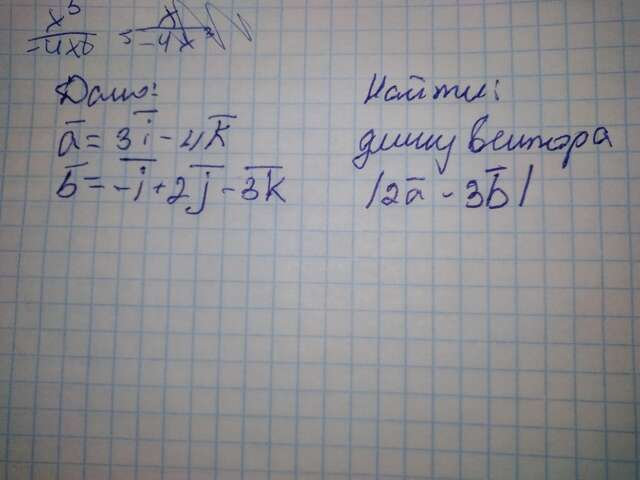 x⁵
-4x⁶
x
-4x
Дано:
a̅ = 3i̅ - 4k̅
b̅ = -i̅ + 2j̅ - 3k̅
Найти:
длину вектора
|2a̅ - 3b̅|